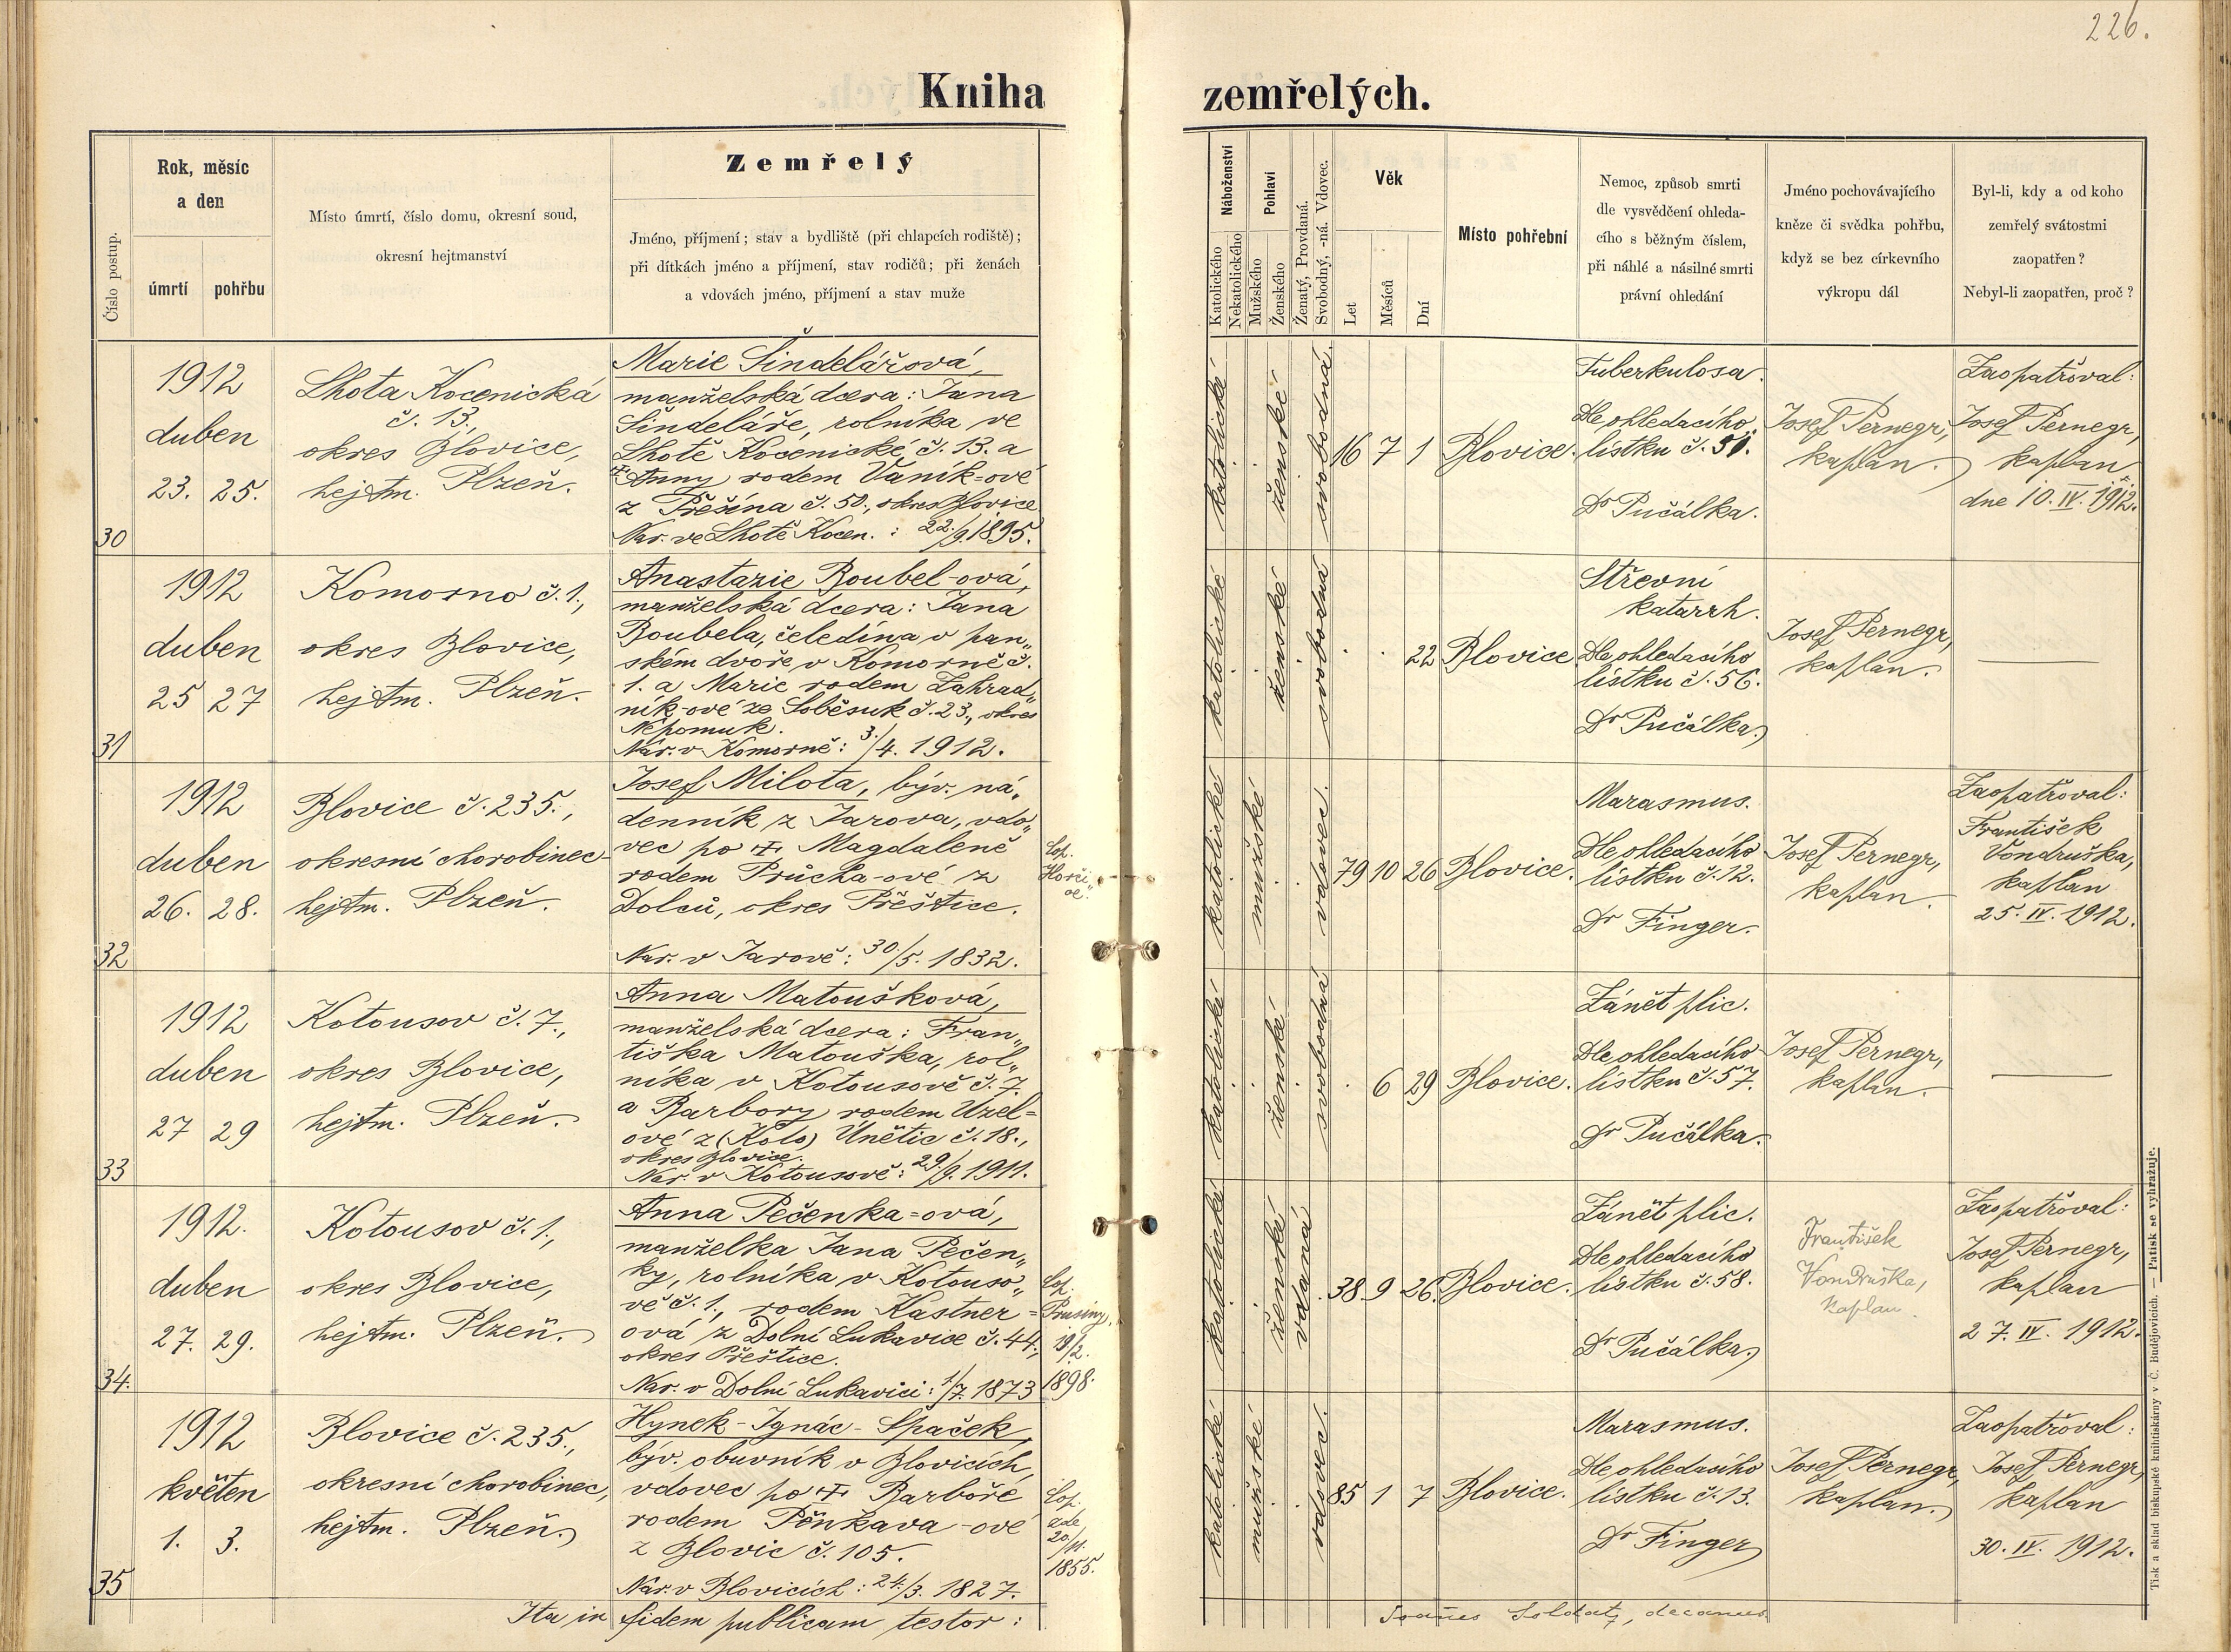 226.
Kniha zemřelých.
Číslo postup.
Rok, měsíc
a den
úmrtí
pohřbu
Místo úmrtí, číslo domu, okresní soud,
okresní hejtmanství
Zemřelý
Jméno, příjmení; stav a bydliště (při chlapcích rodiště);
při dítkách jméno a příjmení, stav rodičů; při ženách
a vdovách jméno, příjmení a stav muže
Náboženství
Katolického
Nekatolického
Pohlaví
Mužského
Ženského
Ženatý, Provdaná.
Svobodný, -ná. Vdovec.
Věk
Let
Měsíců
Dní
Místo pohřební
Nemoc, způsob smrti
dle vysvědčení ohleda-
cího s běžným číslem,
při náhlé a násilné smrti
právní ohledání
Jméno pochovávajícího
kněze či svědka pohřbu,
když se bez církevního
výkropu dál
Byl-li, kdy a od koho
zemřelý svátostmi
zaopatřen?
Nebyl-li zaopatřen, proč?
30
1912
duben
23. 25.
Lhota Kocenická
č. 13.,
okres Blovice,
hejtm. Plzeň.
Marie Šindelářová,
manželská dcera: Jana
Šindeláře, rolníka ve
Lhotě Kocenické č. 13. a
Anny rodem Vaník=ové
z Přešína č. 50., okres Blovice
Nar. ve Lhotě Kocen.: 22./9. 1895.
katolické
ženské
svobodná
16 7 1
Blovice.
Tuberkulosa.
Dle ohledacího
lístku č. 51.
Dr Pučálka.
Josef Pernegr,
kaplan.
Zaopatřoval:
Josef Pernegr,
kaplan
dne 10. IV. 1912.
31
1912
duben
25 27
Komorno č. 1.,
okres Blovice,
hejtm. Plzeň.
Anastazie Roubel-ová,
manželská dcera: Jana
Roubela, čeledína v pan„
ském dvoře v Komorně č.
1. a Marie rodem Zahrad„
ník-ové ze Soběsuk č. 23., okres
Nepomuk.
Nar. v Komorně: 3./4. 1912.
katolické
ženské
svobodná
22
Blovice
Střevní
katarrh.
Dle ohledacího
lístku č. 56.
Dr Pučálka.
Josef Pernegr,
kaplan.
32
1912
duben
26. 28.
Blovice č. 235.,
okresní chorobinec
hejtm. Plzeň.
Josef Milota, býv. ná„
denník z Jarova, vdo„
vec po Magdaleně
rodem Průcha-ové z
Dolců, okres Přeštice.
Nar. v Jarově: 30./5. 1832.
Cop.
katolické
mužské
vdovec.
79 10 26
Blovice.
Marasmus.
Dle ohledacího
lístku č. 12.
Dr Finger.
Josef Pernegr,
kaplan.
Zaopatřoval:
František
Vondruška,
kaplan
25. IV. 1912.
33
1912
duben
27 29
Kotousov č. 7.,
okres Blovice,
hejtm. Plzeň.
Anna Matoušková,
manželská dcera: Fran„
tiška Matouška, rol„
níka v Kotousově č. 7.
a Barbory rodem Uzel=
ové z (Koto) Únětic č. 18.,
okres Blovice.
Nar. v Kotousově: 29./9. 1911.
katolické
ženské
svobodná
6 29
Blovice.
Zánět plic.
Dle ohledacího
lístku č. 57.
Dr Pučálka.
Josef Pernegr,
kaplan.
34.
1912.
duben
27. 29.
Kotousov č. 1.,
okres Blovice,
hejtm. Plzeň.
Anna Pečenka=ová,
manželka Jana Pečen„
ky, rolníka v Kotouso„
vě č. 1., rodem Kastner=
ová z Dolní Lukavice č. 44.,
okres Přeštice.
Nar. v Dolní Lukavici: 1/7. 1873
Cop.
Prusiny,
19/2.
1898.
katolické
ženské
vdaná
38 9 26.
Blovice.
Zánět plic.
Dle ohledacího
lístku č. 58.
Dr Pučálka.
František
Vondruška,
kaplan.
Zaopatřoval:
Josef Pernegr,
kaplan
27. IV. 1912.
35
1912
květen
1. 3.
Blovice č. 235.,
okresní chorobinec,
hejtm. Plzeň.
Hynek-Ignác-Špaček,
býv. obuvník v Blovicích,
vdovec po Barboře
rodem Pěnkava-ové
z Blovic č. 105.
Nar. v Blovicích: 24./3. 1827.
Cop.
zde
20./11.
1855.
katolické
mužské
vdovec.
85 1 7
Blovice.
Marasmus.
Dle ohledacího
lístku č. 13.
Dr Finger
Josef Pernegr,
kaplan.
Zaopatřoval:
Josef Pernegr,
kaplan
30. IV. 1912.
Ita in fidem publicam testor:
Joannes Soldat, decanus
Tisk a sklad biskupské knihtiskárny v Č. Budějovicích. — Patisk se vyhražuje.